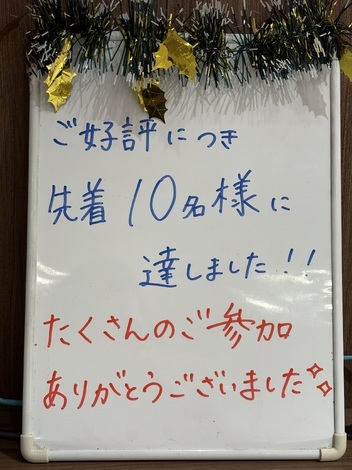 ご好評につき
先着10名様に
達しました!!
たくさんのご参加
ありがとうございました✨